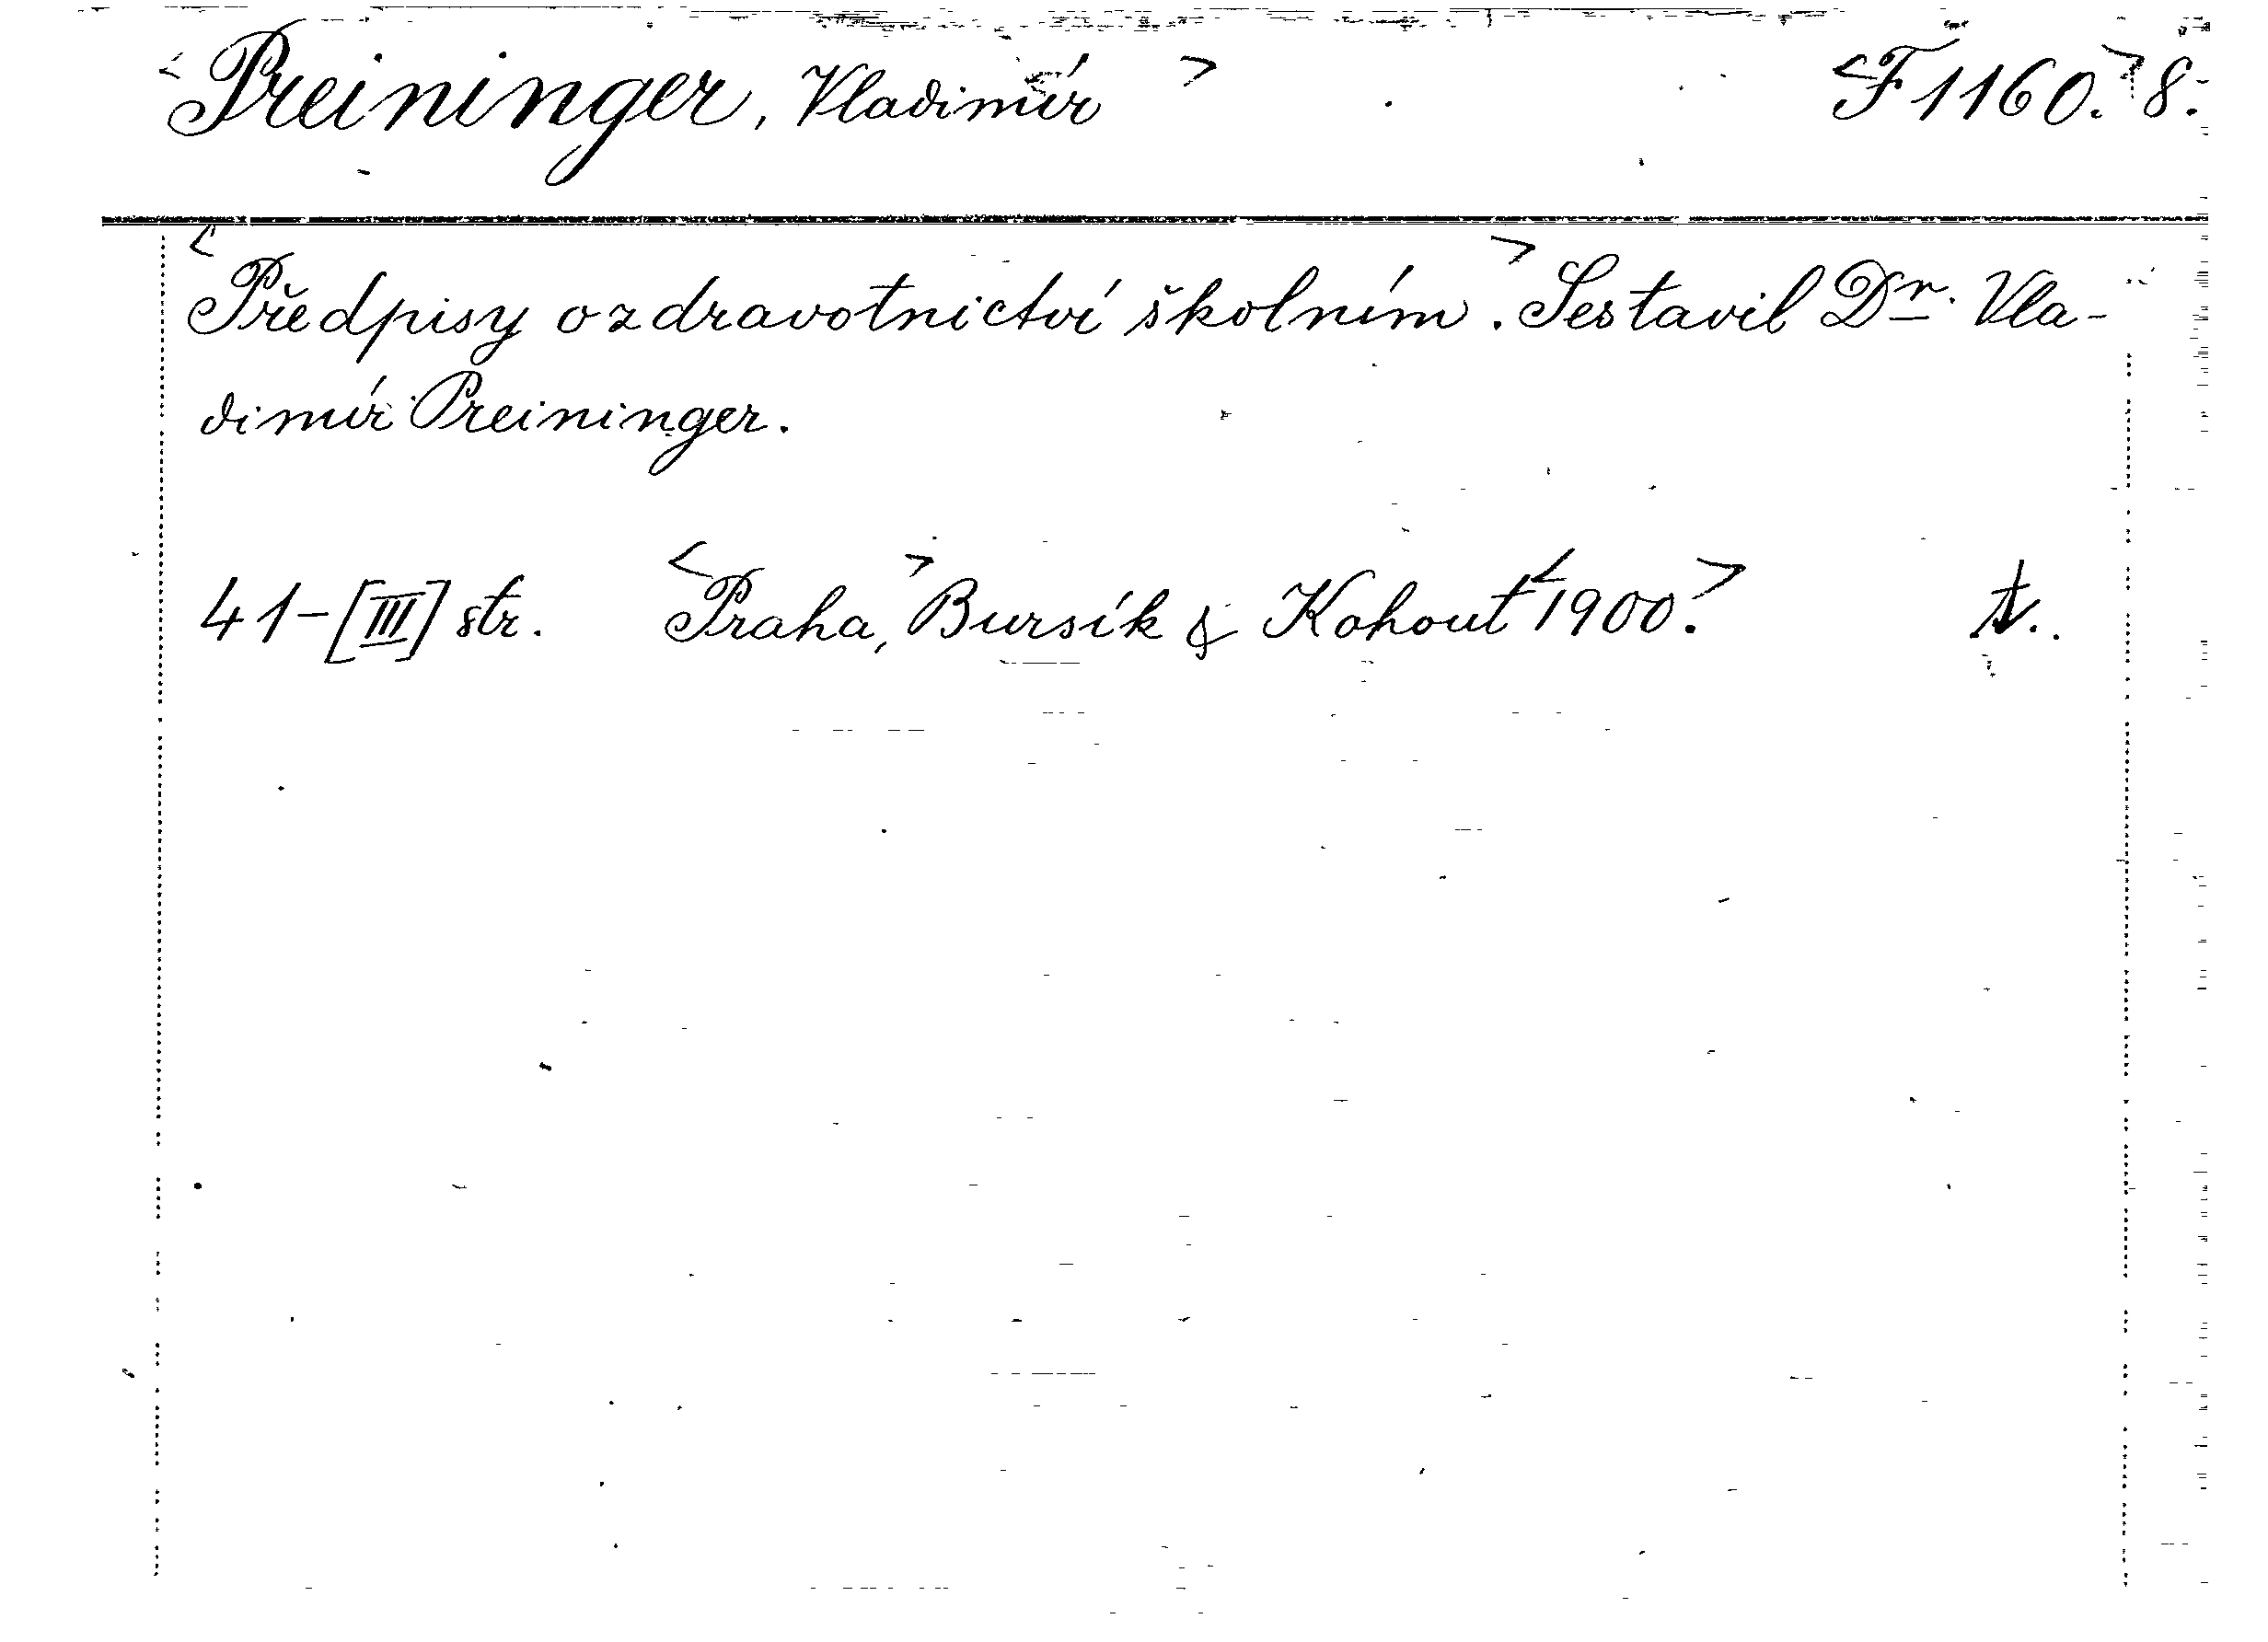 <Preininger, Vladimír> <F 1160.> 8.
<Předpisy o zdravotnictví školním.> Sestavil Dr. Vla-
dimír Preininger.
41-[III] str. <Praha,> Bursík & Kohout <1900.>